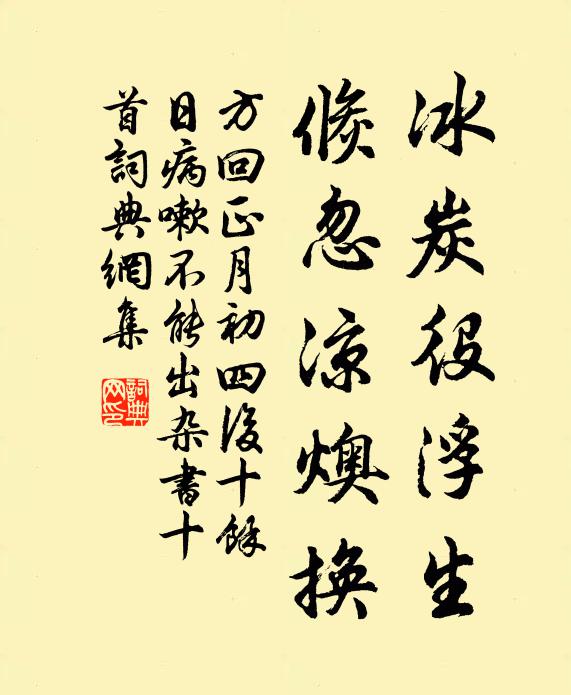 冰炭役浮生
倏忽凉燠換
方回正月初四後十餘
日病嗽不能出杂書十
首詞典網集
詞典
网印